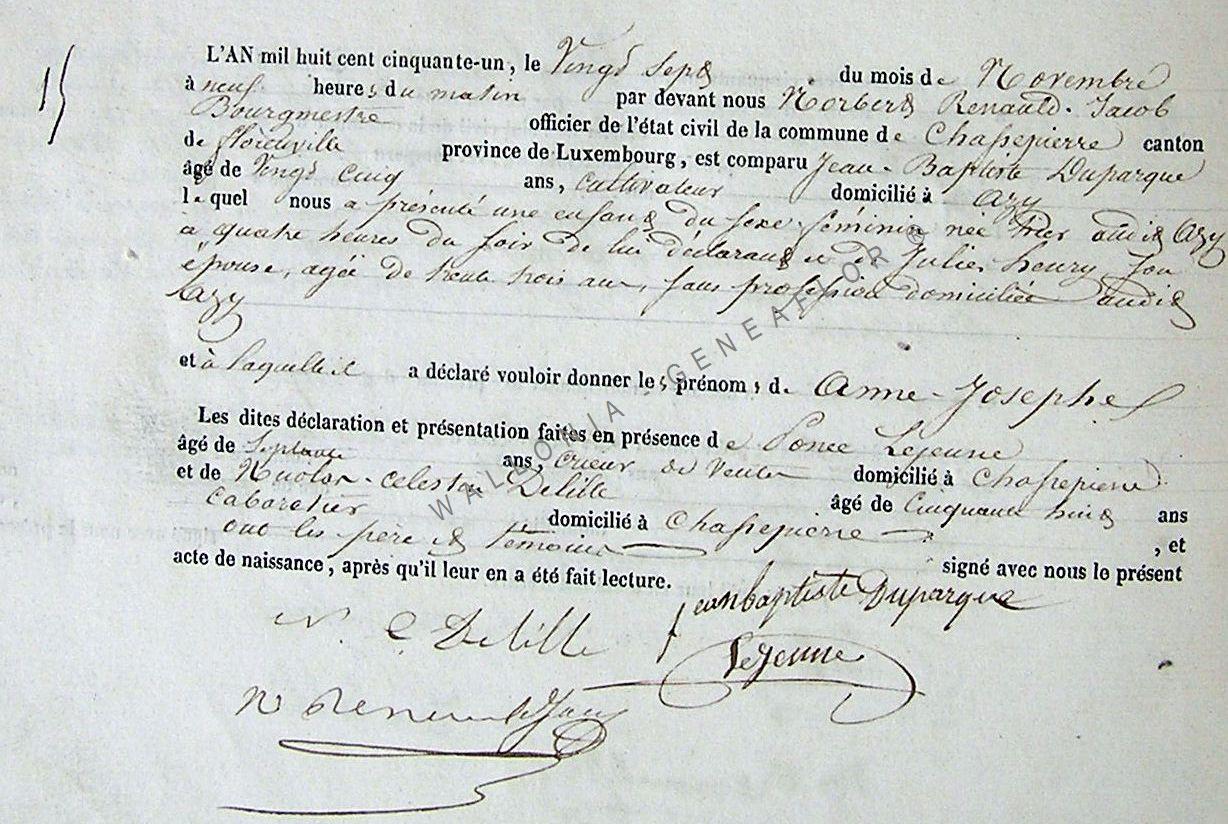 15
L'AN mil huit cent cinquante-un, le Vingt Sept du mois de Novembre
à neuf heures du matin par devant nous Norbert Renauld-Jacob
Bourgmestre officier de l'état civil de la commune de Chassepierre canton
de florenville province de Luxembourg, est comparu Jean-Baptiste Duparque
âgé de Vingt Cinq ans, cultivateur domicilié à azy
lequel nous a présenté une enfant du sexe féminin née hier audit azy
à quatre heures du soir de lui déclarant et de Julie henry Son
épouse, agée de trente trois ans, sans profession domiciliée audit
azy
et à laquelle il a déclaré vouloir donner les prénoms de Anne-Josephe
Les dites déclaration et présentation faites en présence de Ponce Lejeune
âgé de Septante ans, crieur de Ventes domicilié à Chassepierre
et de Celeston Delille âgé de Cinquante huit ans
Cabaretier domicilié à Chassepierre, et
ont les père et témoins signé avec nous le présent
acte de naissance, après qu'il leur en a été fait lecture.
jeanbaptiste Duparque
N. C Delille
Lejeune
N Renauld Jacob
WALLONIA GENEAFLOR ©